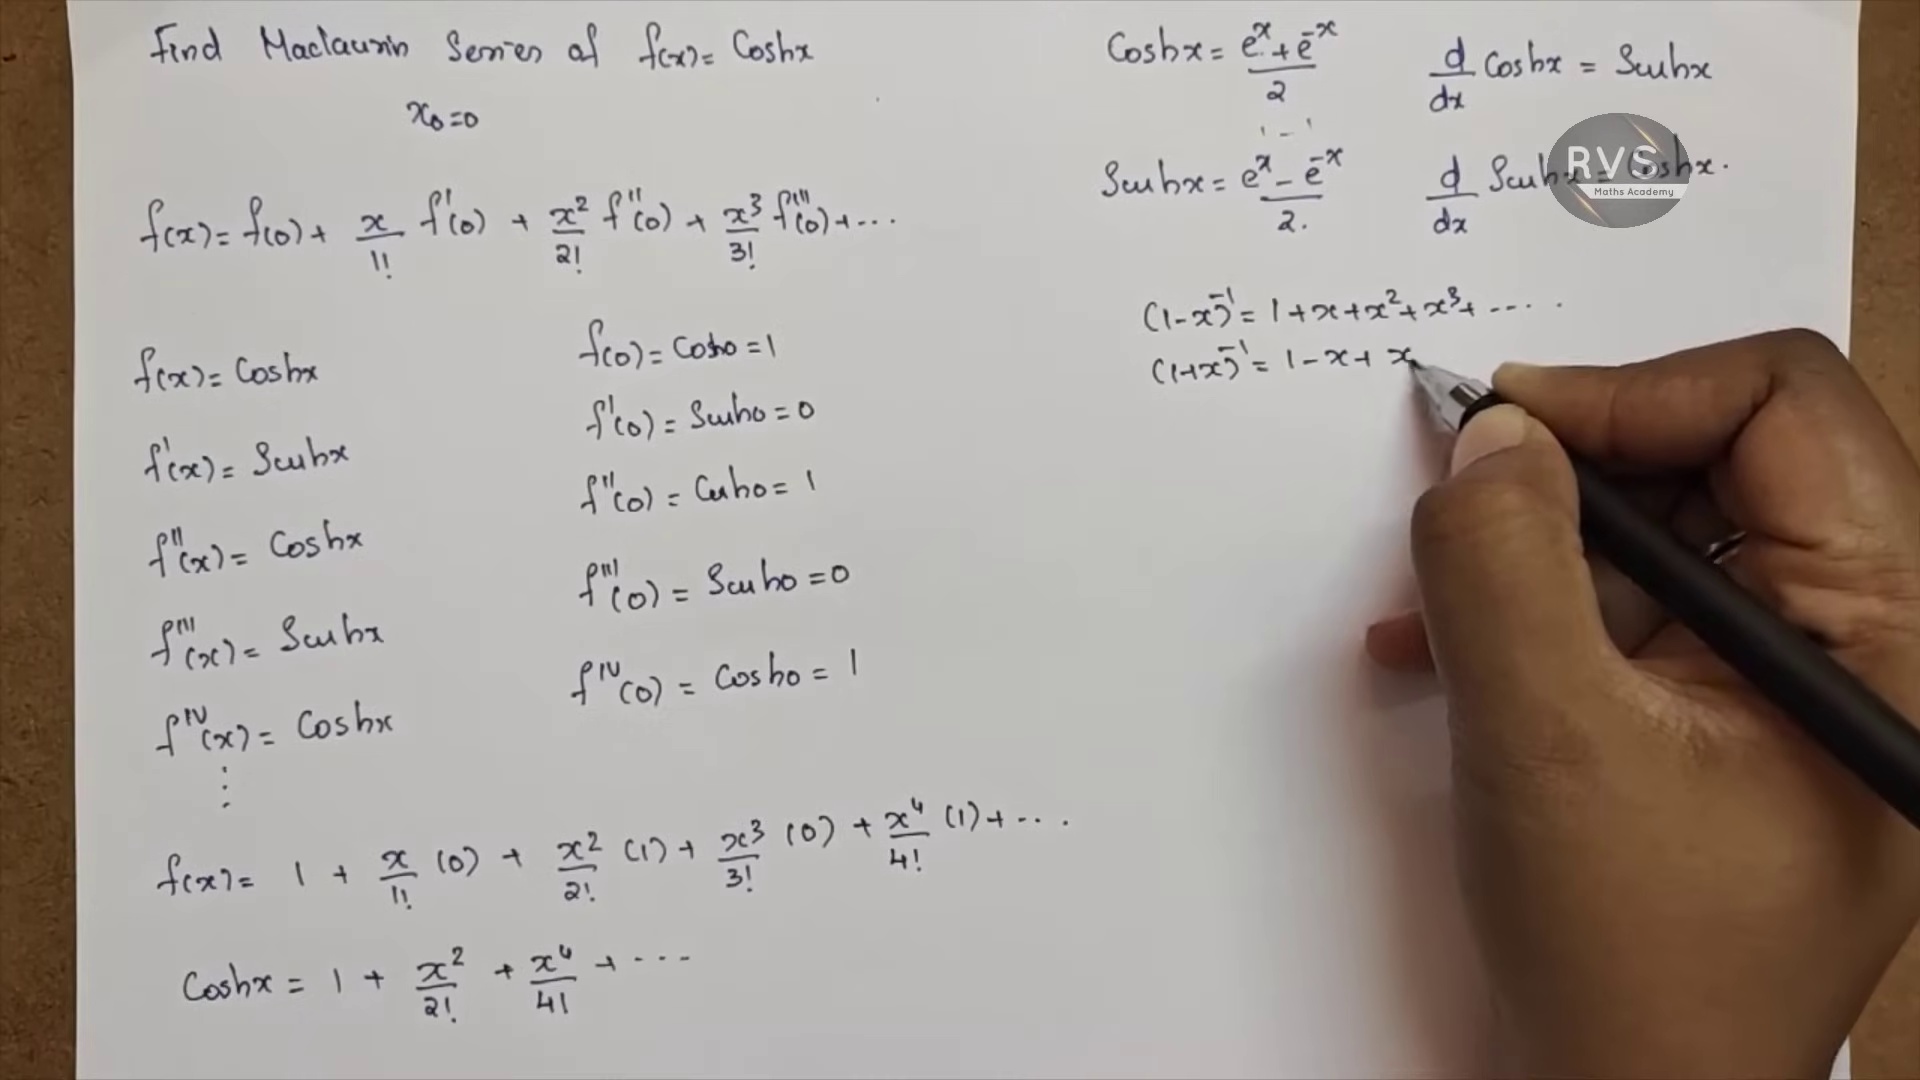 Find Maclaurin Series of f(x) = Coshx
x₀=0
f(x) = f(0) + x/1! f'(0) + x²/2! f''(0) + x³/3! f'''(0) + ...
f(x) = Coshx
f(0) = Cosh0 = 1
f'(x) = Sinhx
f'(0) = Sinh0 = 0
f''(x) = Coshx
f''(0) = Cosh0 = 1
f'''(x) = Sinhx
f'''(0) = Sinh0 = 0
f^IV(x) = Coshx
f^IV(0) = Cosh0 = 1
⋮
f(x) = 1 + x/1! (0) + x²/2! (1) + x³/3! (0) + x⁴/4! (1) + ...
Coshx = 1 + x²/2! + x⁴/4! + ...
Coshx = (eˣ + e⁻ˣ)/2
d/dx Coshx = Sinhx
1 - 1
Sinhx = (eˣ - e⁻ˣ)/2.
d/dx Sinhx = Coshx.
RVS
Maths Academy
(1-x)⁻¹ = 1 + x + x² + x³ + .....
(1+x)⁻¹ = 1 - x + x